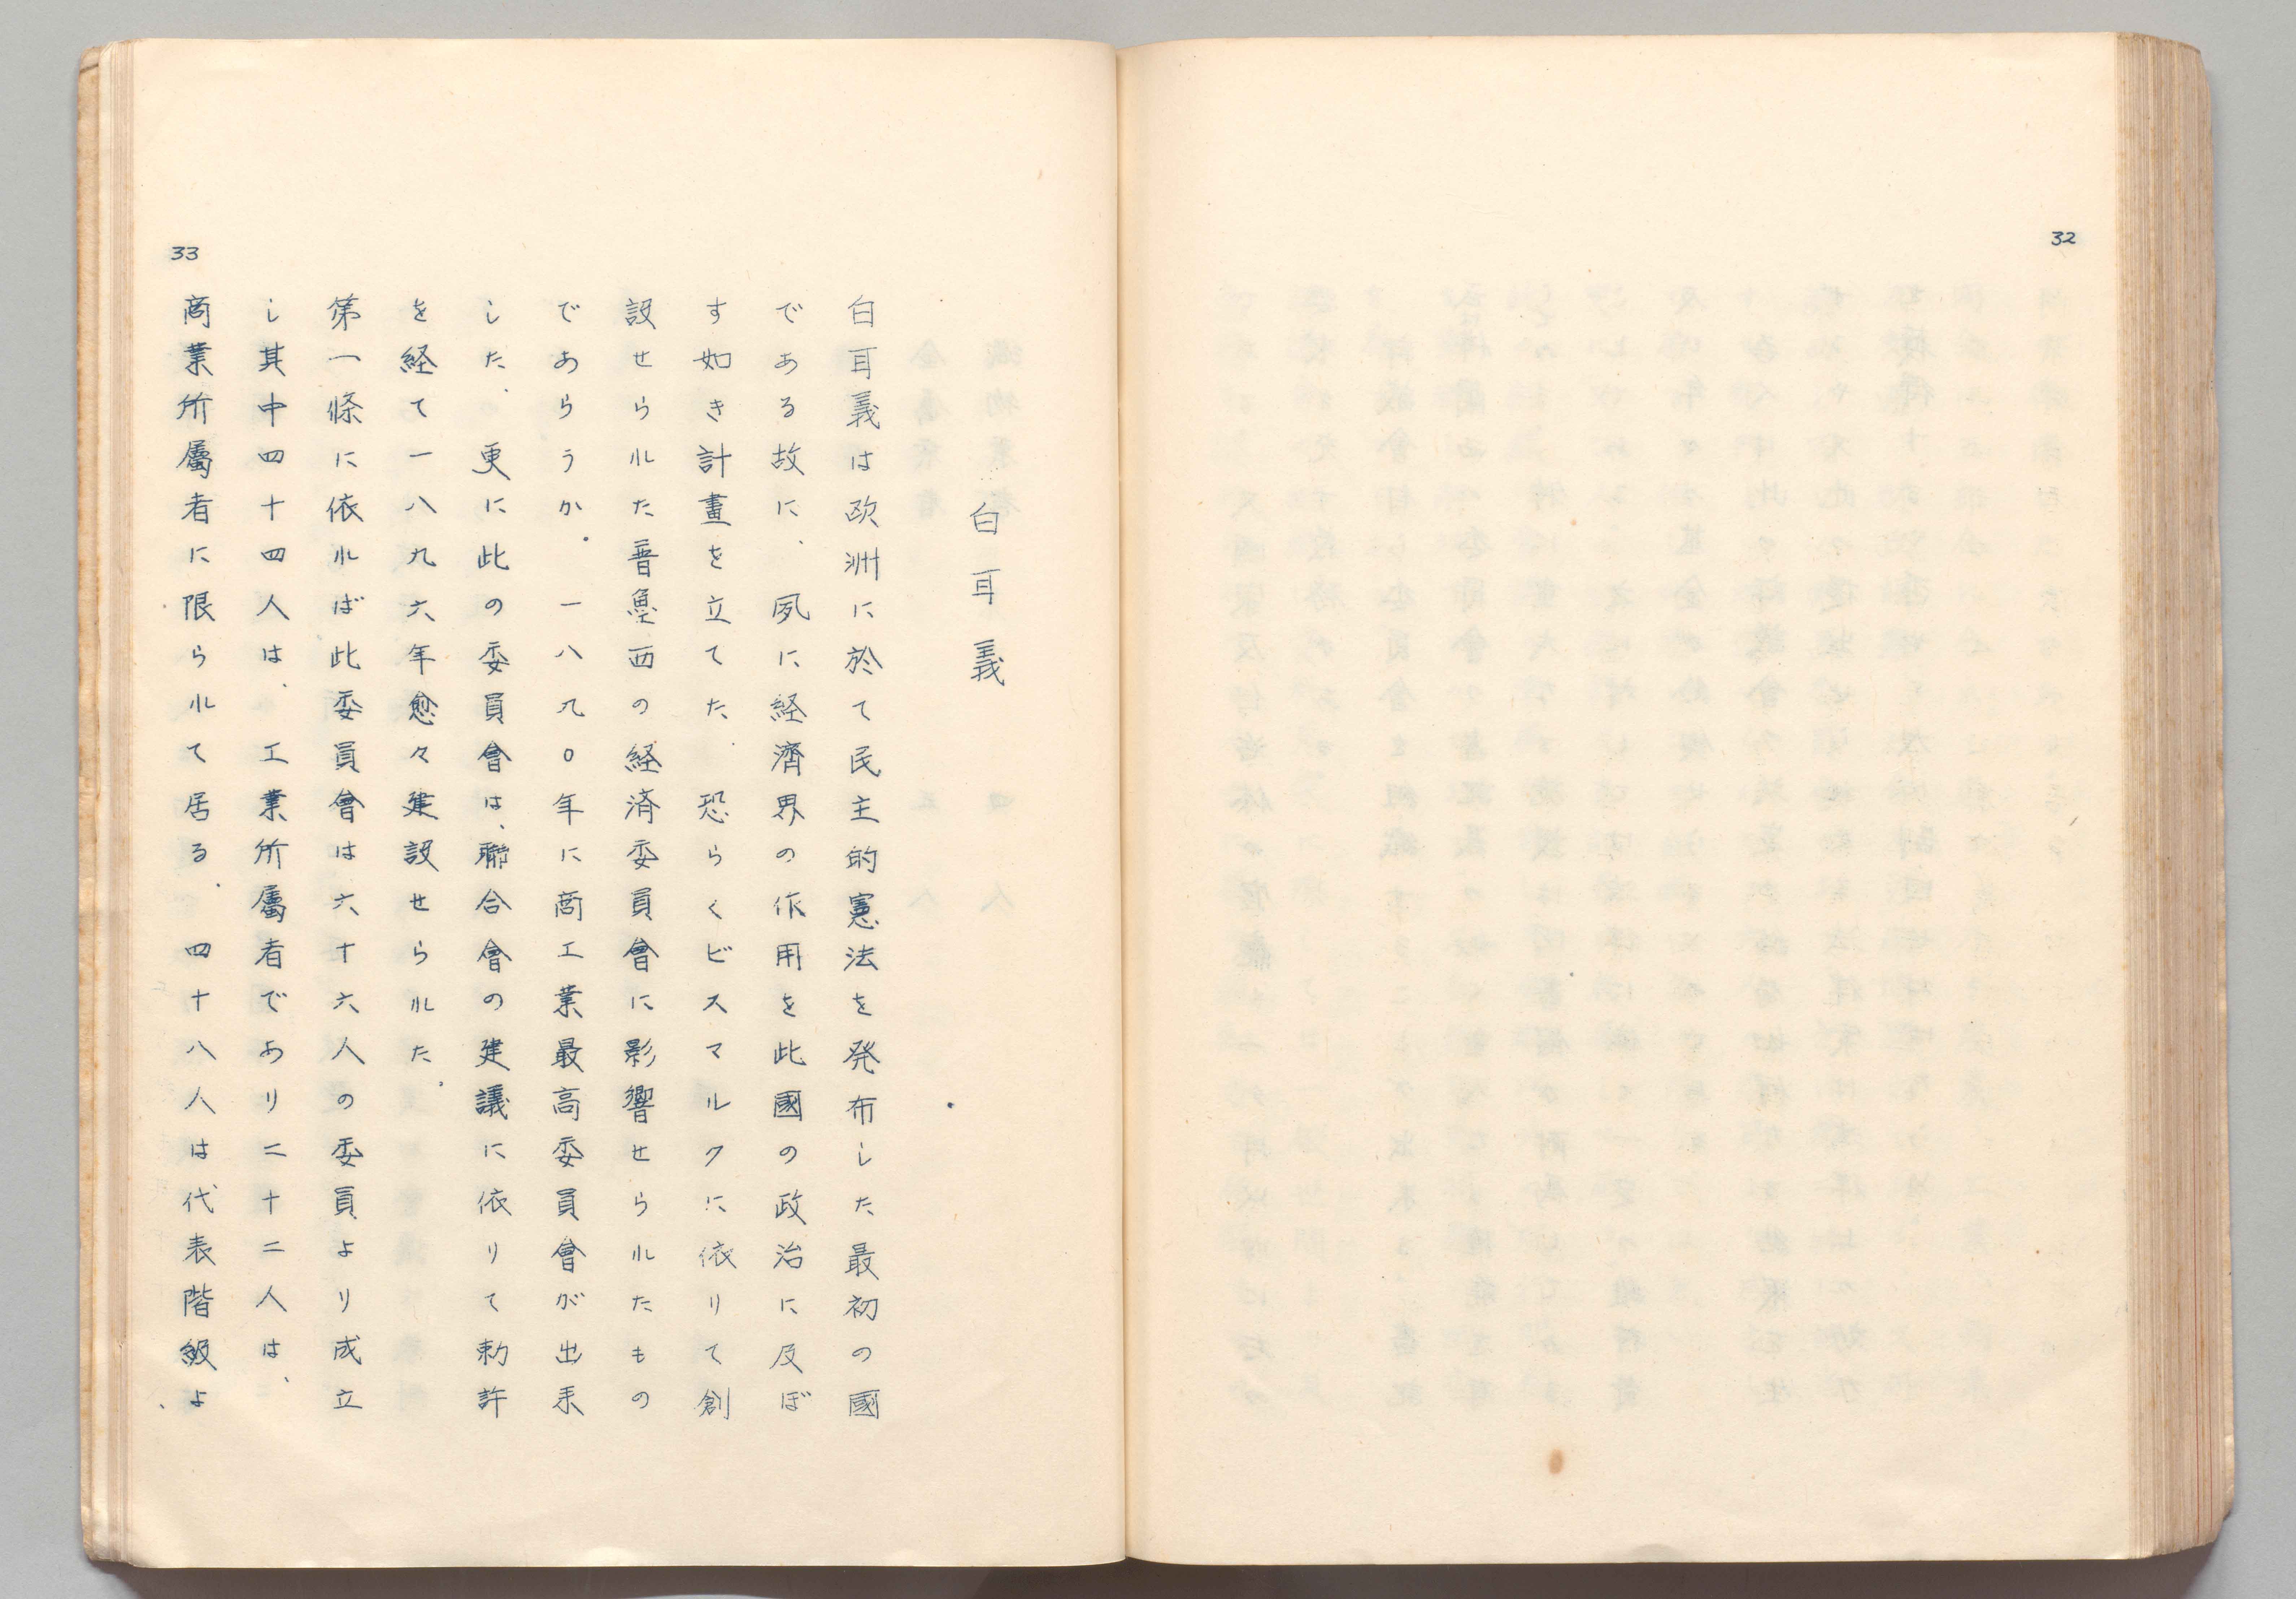 32
白耳義
白耳義は欧洲に於て民主的憲法を発布した最初の國
である故に、夙に経濟界の作用を此國の政治に及ぼ
す如き計畫を立てた、恐らくビスマルクに依りて創
設せられた普魯西の経済委員會に影響せられたもの
であらうか。一八九〇年に商工業最高委員會が出来
した、更に此の委員會は、聯合會の建議に依りて勅許
を経て一八九六年愈々建設せられた。
第一條に依れば此委員會は六十六人の委員より成立
し其中四十四人は、工業所屬者であり二十二人は、
商業所屬者に限られて居る、四十八人は代表階級よ
33